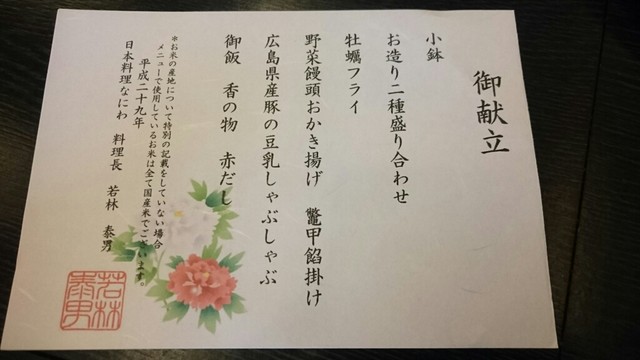 御献立
小鉢
お造り二種盛り合わせ
牡蠣フライ
野菜饅頭おかき揚げ　鼈甲餡掛け
広島県産豚の豆乳しゃぶしゃぶ
御飯　香の物　赤だし
※お米の産地について特別の記載をしていない場合
メニューで使用しているお米は全て国産米でございます。
平成二十九年
日本料理なにわ　料理長　若林　泰男
若林
泰男